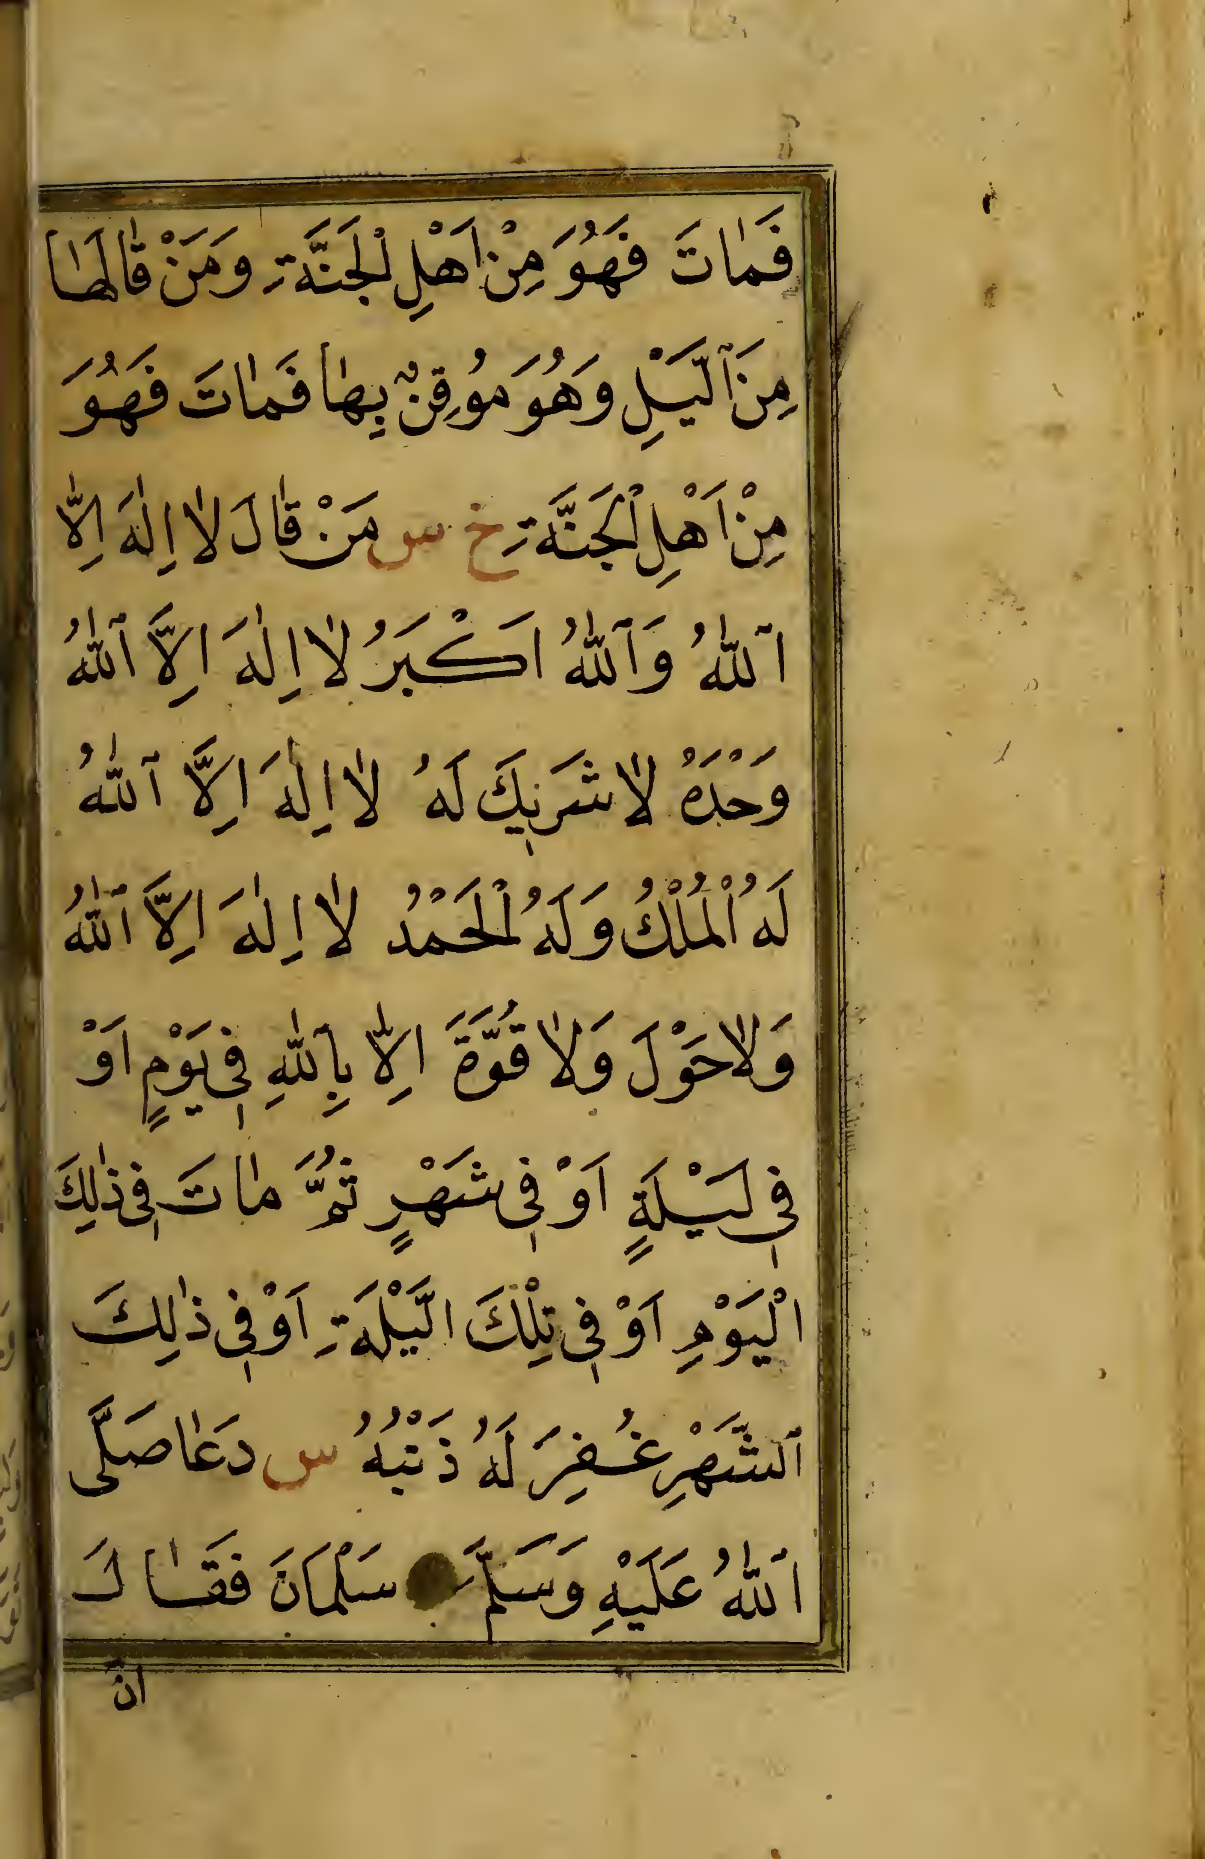 فَمَاتَ فَهُوَ مِنْ اَهْلِ الْجَنَّةِ وَمَنْ قَالَهَا
مِنَ الَّيْلِ وَهُوَ مُوقِنٌ بِهَا فَمَاتَ فَهُوَ
مِنْ اَهْلِ الْجَنَّةِ خ س مَنْ قَالَ لَا اِلٰهَ اِلَّا
اللّٰهُ وَاللّٰهُ اَكْبَرُ لَا اِلٰهَ اِلَّا اللّٰهُ
وَحْدَهُ لَا شَرِيكَ لَهُ لَا اِلٰهَ اِلَّا اللّٰهُ
لَهُ الْمُلْكُ وَلَهُ الْحَمْدُ لَا اِلٰهَ اِلَّا اللّٰهُ
وَلَا حَوْلَ وَلَا قُوَّةَ اِلَّا بِاللّٰهِ فِي يَوْمٍ اَوْ
فِي لَيْلَةٍ اَوْ فِي شَهْرٍ ثُمَّ مَاتَ فِي ذٰلِكَ
الْيَوْمِ اَوْ فِي تِلْكَ الَّيْلَةِ اَوْ فِي ذٰلِكَ
الشَّهْرِ غُفِرَ لَهُ ذَنْبُهُ س دَعَا صَلَّى
اللّٰهُ عَلَيْهِ وَسَلَّمَ سَلْمَانَ فَقَالَ
انّ